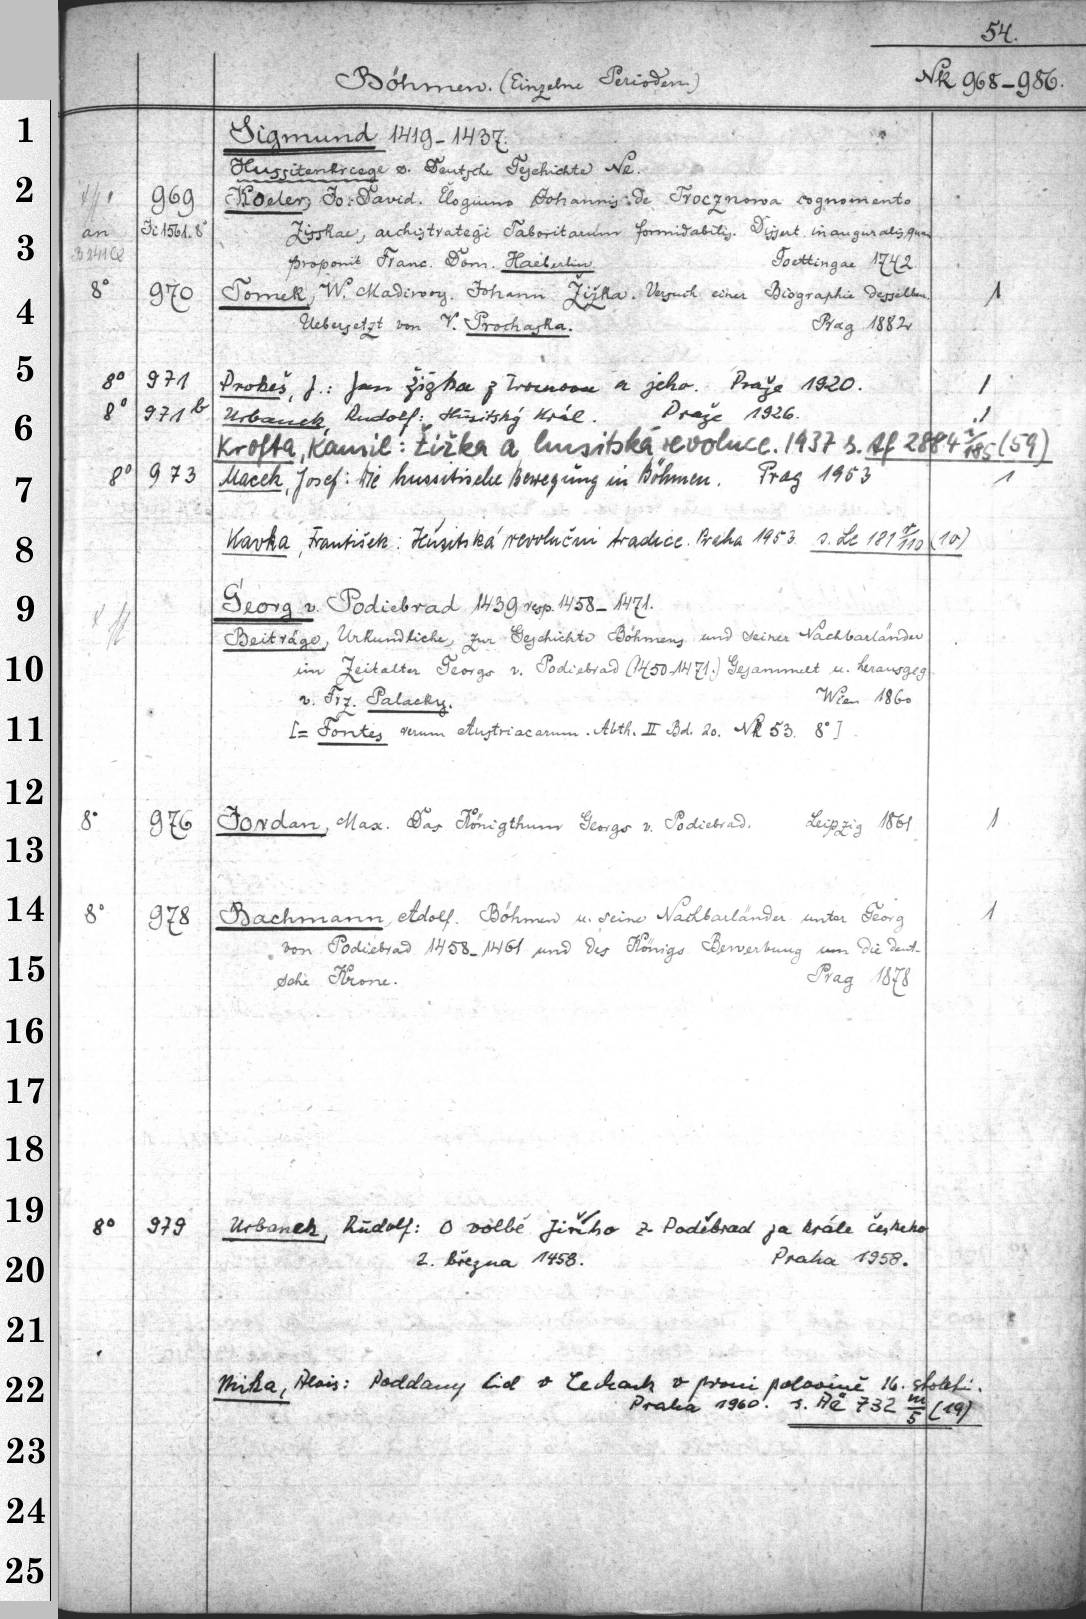 54.
Böhmen. (Einzelne Perioden) Nk 968-986.
1 Sigmund 1419-1437.
Hussitenkriege s. Deutsche Geschichte Ne.
2 969 Koeler, Jo. David. Elogium Johannis de Trocznowa cognomento
an Ji 1561. 8° Zisskae, archistrategi Taboritarum formidabilis. Dissert. inauguralis, quam
3 proponit Franc. Dom. Haeberlin Goettingae 1742
8° 970 Tomek, W. Madiwoy. Johann Žižka. Versuch einer Biographie desselben. 1
4 Uebersetzt von V. Prochaska. Prag 1882
5 8° 971 Prokeš, J.: Jan Žižka z Trocnova a jeho. Praze 1920. 1
8° 971 b Urbanek, Rudolf: Husitský Král. Praze 1926. 1
6 Krofta, Kamil: Žižka a husitská revoluce. 1937 s. Af 2884 /185 (59)
7 8° 973 Macek, Josef: Die hussitische Bewegung in Böhmen. Prag 1953 1
8 Kavka, František: Husitská revoluční tradice. Praha 1953. s. Lc 181 r/110 (10)
9 Georg v. Podiebrad 1439 resp. 1458-1471.
Beiträge, Urkundliche, zur Geschichte Böhmens und seiner Nachbarländer
10 im Zeitalter Georgs v. Podiebrad (1450-1471.) Gesammelt u. herausgeg.
v. Frz. Palacky. Wien 1860
11 [= Fontes rerum Austriacarum. Abth. II Bd. 20. Nk 53. 8°]
12
8° 976 Jordan, Max. Das Königthum Georgs v. Podiebrad. Leipzig 1861 1
13
14 8° 978 Bachmann, Adolf. Böhmen u. seine Nachbarländer unter Georg 1
von Podiebrad 1458-1461 und des Königs Bewerbung um die deut-
15 sche Krone. Prag 1878
16
17
18
19 8° 979 Urbanek, Rudolf: O volbě Jiřího z Poděbrad za krále českeho
20 2. března 1458. Praha 1958.
21
22 Mika, Alois: Poddany lid v Cechach v prvni polovině 16. stoleti.
Praha 1960. s. Ač 732 m/5 (19)
23
24
25